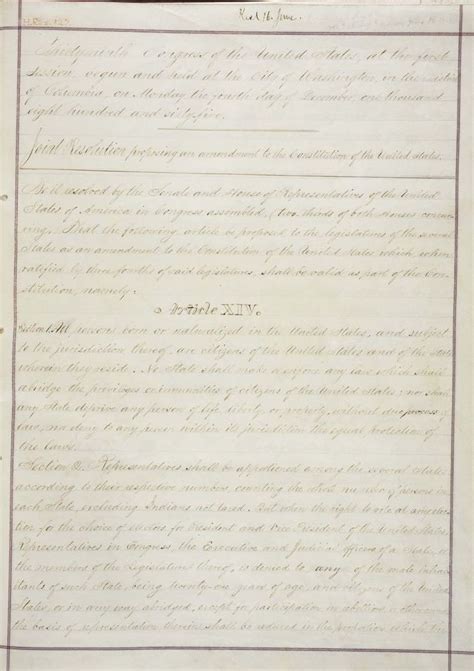 H.Res. 127.
Rec'd 16 June
Thirty-ninth Congress of the United States, at the first
Session, begun and held at the City of Washington, in the District
of Columbia, on Monday the fourth day of December, one thousand
eight hundred and sixty-five.
Joint Resolution proposing an amendment to the Constitution of the United States.
Be it resolved by the Senate and House of Representatives of the United
States of America in Congress assembled, (two thirds of both Houses concur-
ring,) That the following article be proposed to the legislatures of the several
States as an amendment to the Constitution of the United States, which, when
ratified by three fourths of said legislatures, shall be valid as part of the Con-
stitution, namely:
Article XIV.
Section 1. All persons born or naturalized in the United States, and subject
to the jurisdiction thereof, are citizens of the United States and of the State
wherein they reside. No State shall make or enforce any law which shall
abridge the privileges or immunities of citizens of the United States; nor shall
any State deprive any person of life, liberty, or property, without due process of
law; nor deny to any person within its jurisdiction the equal protection of
the laws.
Section 2. Representatives shall be apportioned among the several States
according to their respective numbers, counting the whole number of persons in
each State, excluding Indians not taxed. But when the right to vote at any elec-
tion for the choice of electors for President and Vice President of the United States,
Representatives in Congress, the Executive and Judicial officers of a State, or
the members of the Legislature thereof, is denied to any of the male inhabi-
tants of such State, being twenty-one years of age, and citizens of the United
States, or in any way abridged, except for participation in rebellion, or other crime,
the basis of representation therein shall be reduced in the proportion which the